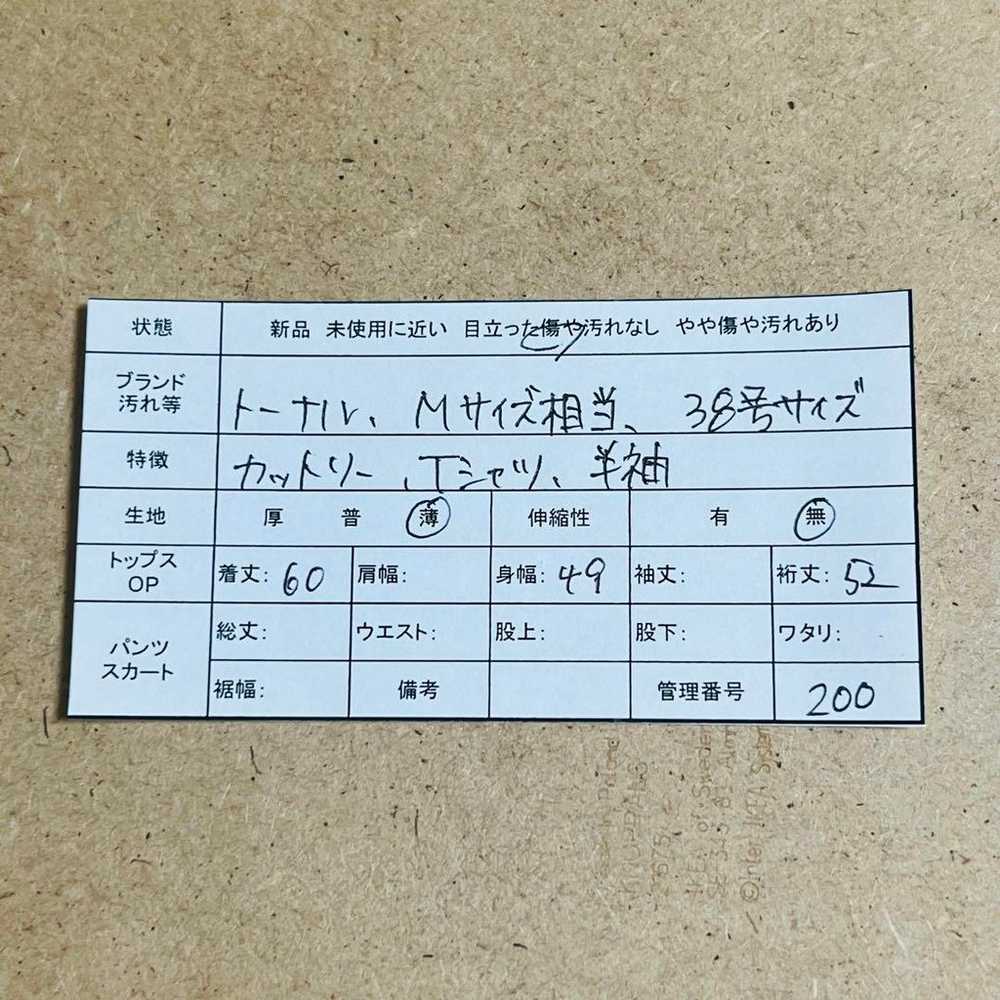 状態 新品 未使用に近い 目立った傷や汚れなし やや傷や汚れあり
ブランド
汚れ等 トーナル、Mサイズ相当、38号サイズ
特徴 カットソー、Tシャツ、半袖
生地 厚 普 薄 伸縮性 有 無
トップス
OP 着丈: 60 肩幅: 身幅: 49 袖丈: 裄丈: 52
パンツ
スカート 総丈: ウエスト: 股上: 股下: ワタリ:
裾幅: 備考 管理番号 200